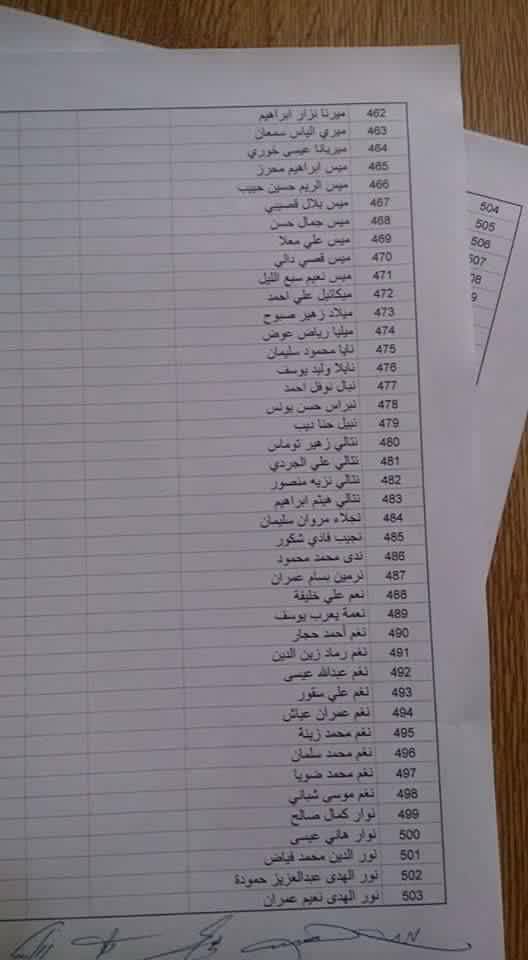 462 ميرنا نزار ابراهيم
463 ميري الياس سمعان
464 ميريانا عيسى خوري
465 ميس ابراهيم محرز
466 ميس الريم حسين حبيب
467 ميس بلال قصيبي
468 ميس جمال حسن
469 ميس علي معلا
470 ميس قصي دالي
471 ميس نعيم سبع الليل
472 ميكائيل علي احمد
473 ميلاد زهير صبوح
474 ميليا رياض عوض
475 نايا محمود سليمان
476 نايلا وليد يوسف
477 نبال نوفل احمد
478 نبراس حسن يونس
479 نبيل حنا ديب
480 نتالي زهير توماس
481 نتالي علي الجردي
482 نتالي نزيه منصور
483 نتالي هيثم ابراهيم
484 نجلاء مروان سليمان
485 نجيب فادي شكور
486 ندى محمد محمود
487 نرمين بسام عمران
488 نعم علي خليفة
489 نعمة يعرب يوسف
490 نغم أحمد حجار
491 نغم رماد زين الدين
492 نغم عبدالله عيسى
493 نغم علي سقور
494 نغم عمران عياش
495 نغم محمد زينة
496 نغم محمد سلمان
497 نغم محمد ضويا
498 نغم موسى شباني
499 نوار كمال صالح
500 نوار هاني عيسى
501 نور الدين محمد فياض
502 نور الهدى عبدالعزيز حمودة
503 نور الهدى نعيم عمران
504
505
506
507
08
9